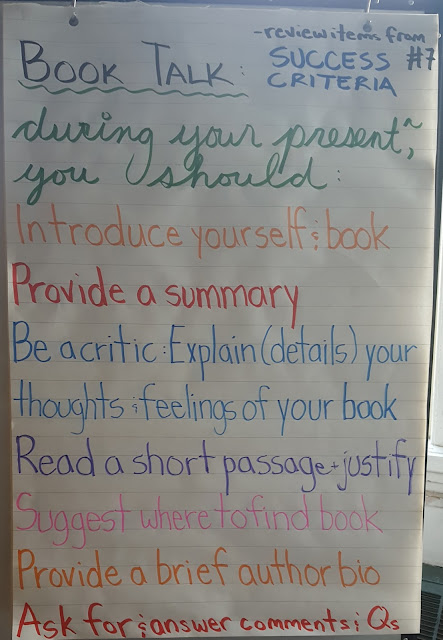 -review items from
SUCCESS #7
CRITERIA
BOOK TALK:
during your present~,
you should:
Introduce yourself & book
Provide a summary
Be a critic: Explain (details) your
thoughts & feelings of your book
Read a short passage + justify
Suggest where to find book
Provide a brief author bio
Ask for & answer comments & Qs